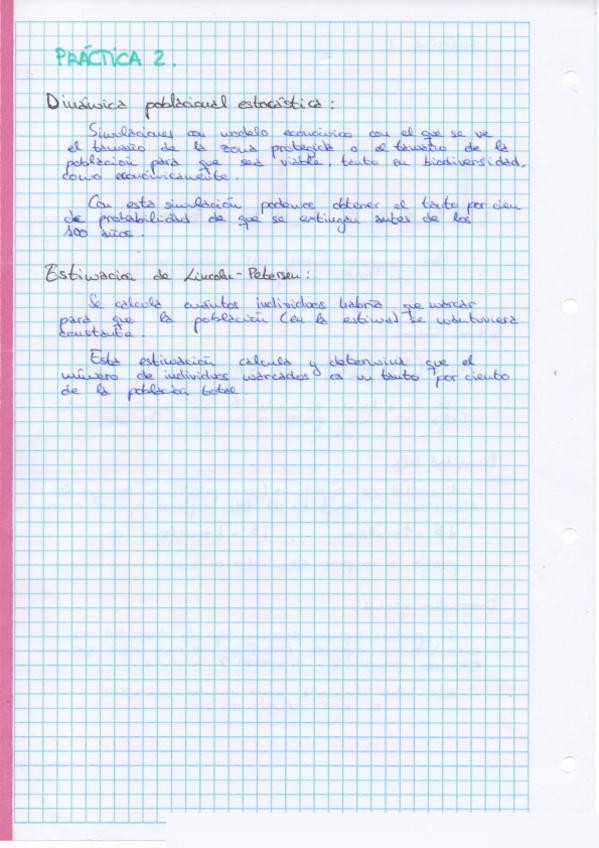 PRÁCTICA 2.
Dinámica poblacional estocástica:
Simulaciones con modelo económico con el que se ve
el tamaño de la zona protegida o el tamaño de la
población para que sea viable, tanto en biodiversidad,
como económicamente.
Con esta simulación podemos obtener el tanto por cien
de probabilidad de que se extingan antes de los
100 años.
Estimación de Lincoln-Petersen:
Se calcula cuántos individuos habría que marcar
para que la población (en la estima) se mantuviera
constante.
Esta estimación calcula y determina que el
número de individuos marcados es un tanto por ciento
de la población total.